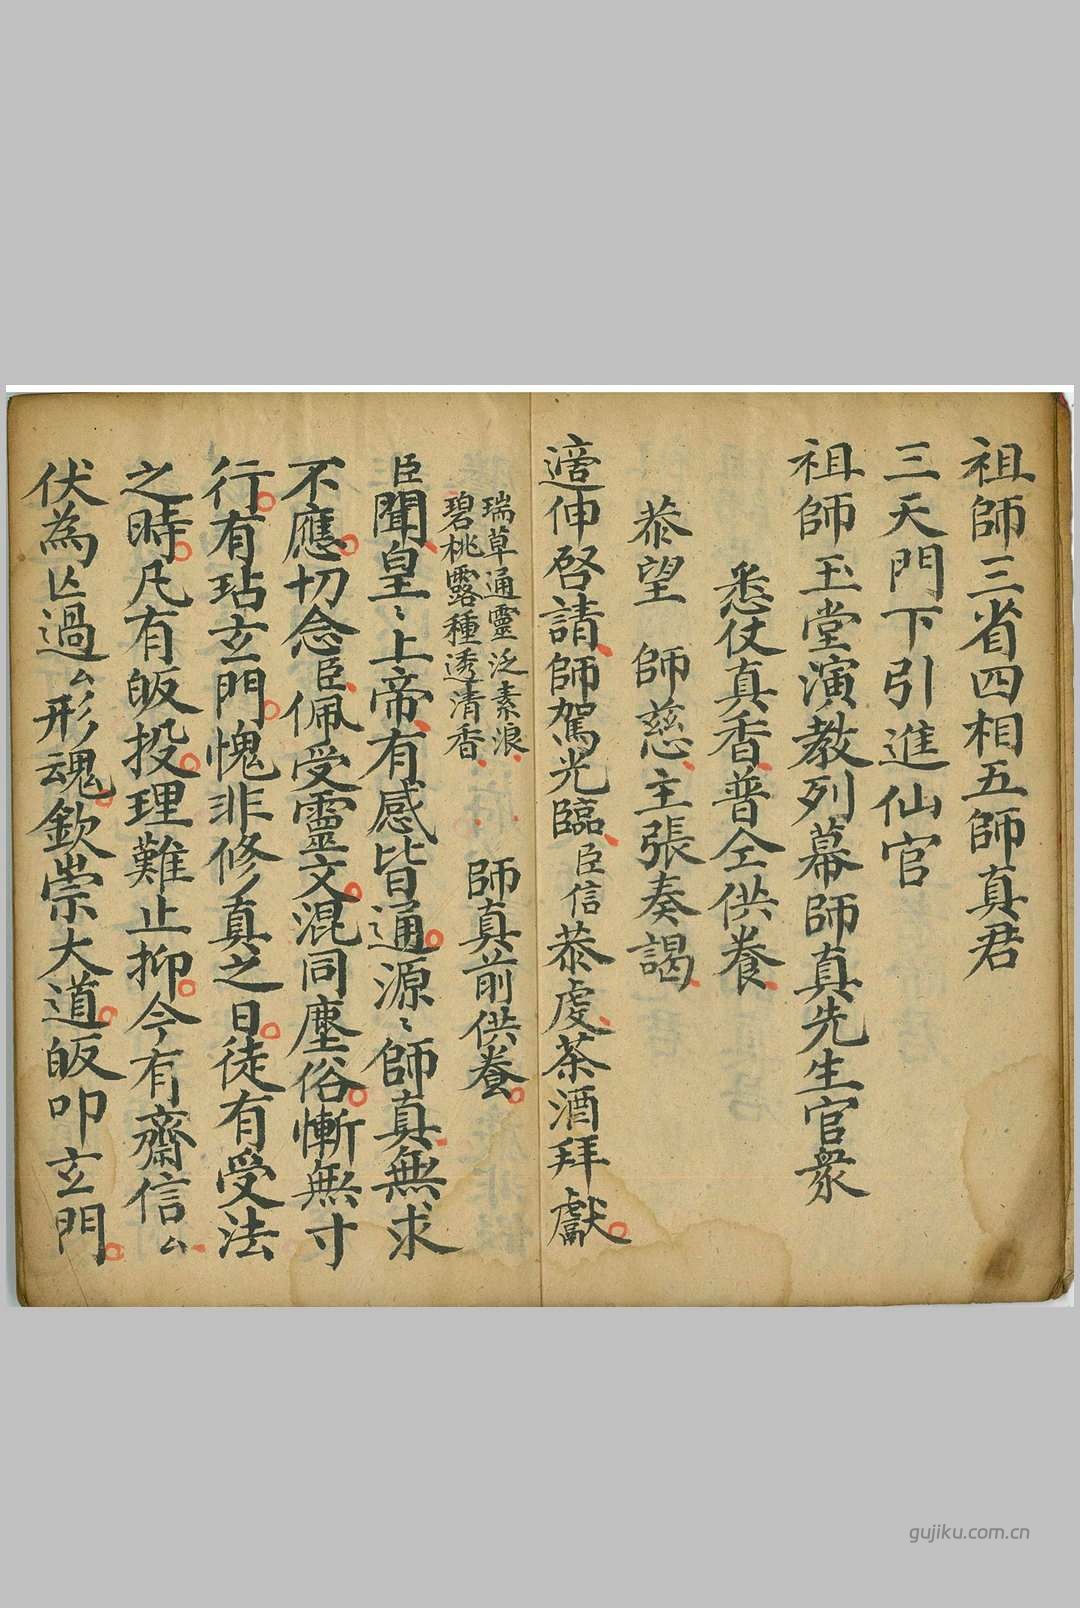 祖師三省四相五師真君
三天門下引進仙官
祖師玉堂演教列幕師真先生官衆
悉仗真香普仝供養
恭望　師慈主張奏謁
適伸啓請師駕光臨臣信恭虔茶酒拜獻
瑞草通靈泛素浪
碧桃露種透清香
師真前供養
臣聞皇〻上帝有感皆通源〻師真無求
不應切念臣佩受靈文混同塵俗慚無寸
行有玷玄門愧非修真之日徒有受法
之時凡有皈投理難止抑今有齋信厶
伏為亾過厶形魂欽崇大道皈叩玄門
gujiku.com.cn